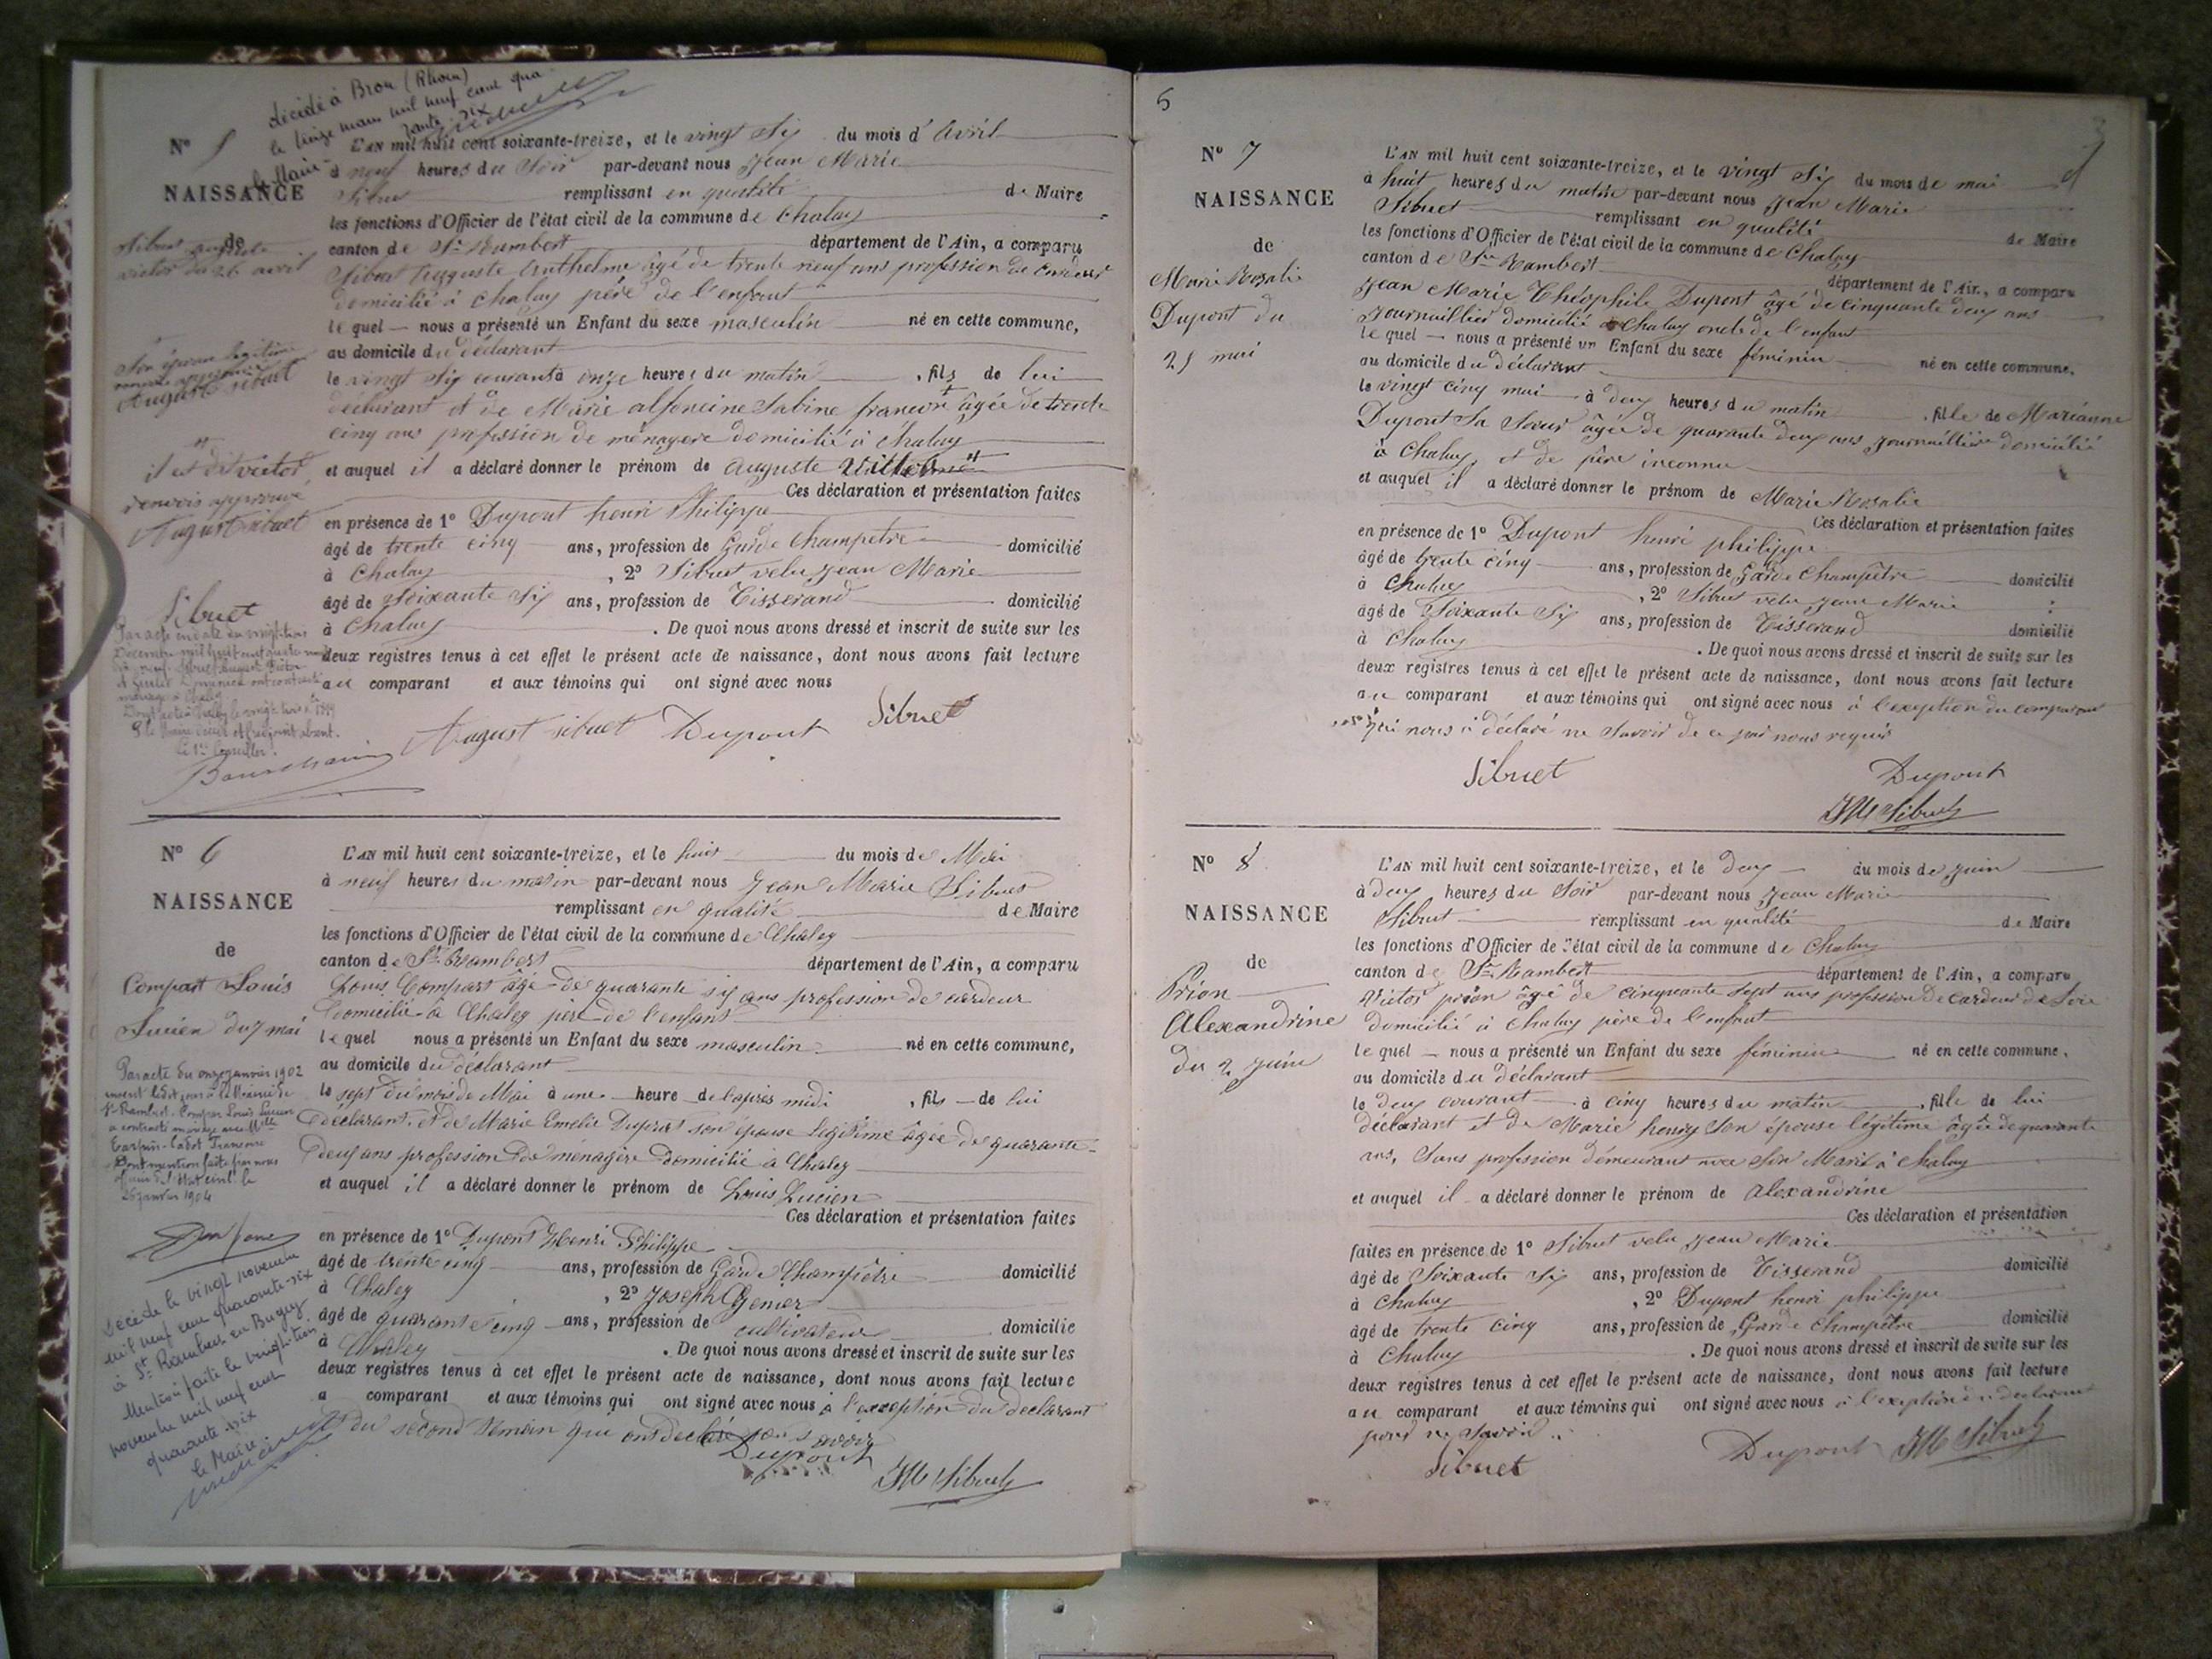 décédé à Bron (Rhône)
le treize mars mil neuf cent qua
rante-six
le Maire
N° 5
NAISSANCE
de
Sibuet auguste
victor du 26 avril
Son épouse légitime
renvoi approuvé
Auguste sibuet
il est dit victor
renvois approuvé
August sibuet
Sibuet
Par acte en date du vingt-trois
Décembre mil huit cent quatre vingt
L'AN mil huit cent soixante-treize, et le vingt Six du mois d'Avril
à neuf heures du Soir par-devant nous Jean Marie
Sibuet remplissant en qualité de Maire
les fonctions d'Officier de l'état civil de la commune de Chaley
canton de St Rambert département de l'Ain, a comparu
Sibuet Auguste Anthelme âgé de trente neuf ans profession de Cardeur
domicilié à Chaley père de l'enfant
lequel nous a présenté un Enfant du sexe masculin né en cette commune,
au domicile du déclarant
le vingt Six courant à onze heures du matin, fils de lui
déclarant et de Marie alfoncine Sabine âgée de trente
cinq ans profession de ménagere domicilié à Chaley
et auquel il a déclaré donner le prénom de Auguste
Ces déclaration et présentation faites
en présence de 1° Dupont henri Philippe
âgé de trente cinq ans, profession de Garde Champetre domicilié
à Chaley, 2° Sibuet velu Jean Marie
âgé de Soixante Six ans, profession de Tisserand domicilié
à Chaley. De quoi nous avons dressé et inscrit de suite sur les
deux registres tenus à cet effet le présent acte de naissance, dont nous avons fait lecture
au comparant et aux témoins qui ont signé avec nous
August sibuet Dupont Sibuet
N° 6
NAISSANCE
de
Compart Louis
Lucien du 7 mai
Par acte du onze janvier 1902
St Rambert. Compar Louis Lucien
a contracté mariage avec Mlle
Dont mention faite par nous
officier de l'état civil le
26 janvier 1904
Décédé le vingt novembre
mil neuf cent quarante-six
à St Rambert en Bugey.
Mention faite le vingt-trois
novembre mil neuf cent
quarante-six
Le Maire.
L'AN mil huit cent soixante-treize, et le huit du mois de Mai
à neuf heures du matin par-devant nous Jean Marie Sibuet
remplissant en qualité de Maire
les fonctions d'Officier de l'état civil de la commune de Chaley
canton de St Rambert département de l'Ain, a comparu
Louis Compart âgé de quarante six ans profession de cardeur
Domicilié à Chaley père de l'enfant
lequel nous a présenté un Enfant du sexe masculin né en cette commune,
au domicile du déclarant
le sept du mois de Mai à une heure de l'après midi, fils de lui
déclarant et de Marie Emelie Dupont son épouse légitime âgée de quarante-
deux ans profession de ménagère domicilié à Chaley
et auquel il a déclaré donner le prénom de Louis Lucien
Ces déclaration et présentation faites
en présence de 1° Dupont Henri Philippe
âgé de trente cinq ans, profession de Garde Champêtre domicilié
à Chaley, 2° Joseph Genier
âgé de quarante cinq ans, profession de cultivateur domicilié
à Chaley. De quoi nous avons dressé et inscrit de suite sur les
deux registres tenus à cet effet le présent acte de naissance, dont nous avons fait lecture
a comparant et aux témoins qui ont signé avec nous à l'exception du declarant
et du second témoin qui ont déclaré savoir
Dupont
JM Sibuet
5
N° 7
NAISSANCE
de
Marie Rosalie
Dupont du
25 mai
L'AN mil huit cent soixante-treize, et le vingt Six du mois de mai
à huit heures du matin par-devant nous Jean Marie
Sibuet remplissant en qualité de Maire
les fonctions d'Officier de l'état civil de la commune de Chaley
canton de St Rambert département de l'Ain, a comparu
Jean Marie Théophile Dupont âgé de cinquante deux ans
journaillier domicilié à Chaley oncle de l'enfant
lequel nous a présenté un Enfant du sexe féminin né en cette commune,
au domicile du déclarant
le vingt cinq mai à deux heures du matin, fille de Marianne
Dupont Sa Soeur âgée de quarante deux ans journaillière domicilié
à Chaley et de père inconnu
et auquel il a déclaré donner le prénom de Marie Rosalie
Ces déclaration et présentation faites
en présence de 1° Dupont henri philippe
âgé de trente cinq ans, profession de Garde Champêtre domicilié
à Chaley, 2° Sibuet velu Jean Marie
âgé de Soixante Six ans, profession de Tisserand domicilié
à Chaley. De quoi nous avons dressé et inscrit de suite sur les
deux registres tenus à cet effet le présent acte de naissance, dont nous avons fait lecture
au comparant et aux témoins qui ont signé avec nous à l'exception du comparant
qui nous a déclaré ne Savoir de ce par nous requis
Sibuet Dupont
JM Sibuet
N° 8
NAISSANCE
de
Prion
Alexandrine
du 2 juin
L'AN mil huit cent soixante-treize, et le deux du mois de juin
à deux heures du Soir par-devant nous Jean Marie
Sibuet remplissant en qualité de Maire
les fonctions d'Officier de l'état civil de la commune de Chaley
canton de St Rambert département de l'Ain, a comparu
Victor prion âgé de cinquante sept ans profession de Cardeur de Soie
domicilié à Chaley père de l'enfant
lequel nous a présenté un Enfant du sexe féminin né en cette commune,
au domicile du déclarant
le deux courant à cinq heures du matin, fille de lui
déclarant et de Marie henry Son épouse légitime âgée de quarante
ans, Sans profession demeurant avec Son Marit à Chaley
et auquel il a déclaré donner le prénom de Alexandrine
Ces déclaration et présentation
faites en présence de 1° Sibuet velu Jean Marie
âgé de Soixante Six ans, profession de Tisserand domicilié
à Chaley, 2° Dupont henri philippe
âgé de trente cinq ans, profession de Garde Champêtre domicilié
à Chaley. De quoi nous avons dressé et inscrit de suite sur les
deux registres tenus à cet effet le présent acte de naissance, dont nous avons fait lecture
au comparant et aux témoins qui ont signé avec nous à l'exception declarant
pour ne Savoir
Sibuet Dupont JM Sibuet